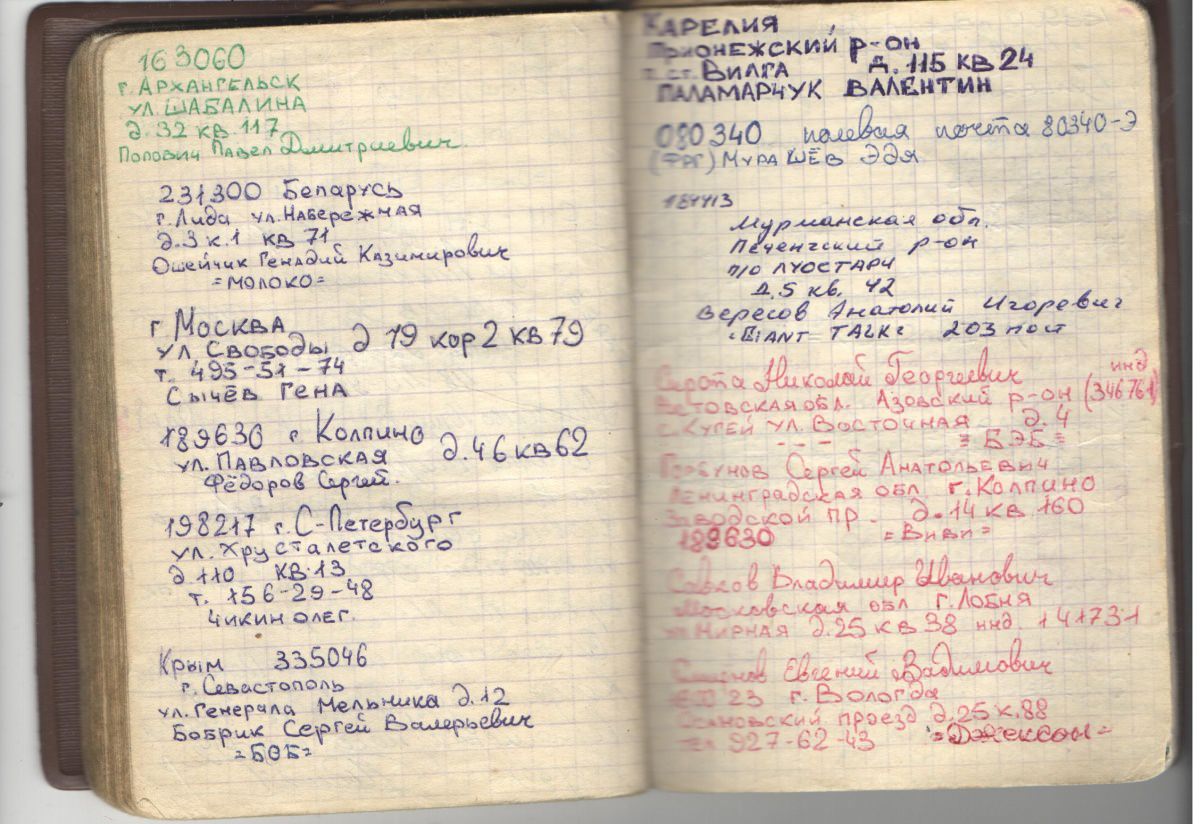 163060
г. Архангельск
ул. Шабалина
д. 32 кв 117
Попович Павел Дмитриевич.
231300 Беларусь
г. Лида ул. Набережная
д. 3 к. 1 кв 71
Ошейчик Генадий Казимирович
=МОЛОКО=
г Москва
ул. Свободы д 19 кор 2 кв 79
т. 495-51-74
Сычёв Гена
189630 г Колпино
ул. Павловская д. 46 кв 62
Фёдоров Сергей.
198217 г. С-Петербург
ул. Хрусталетского
д 110 кв. 13
т. 156-29-48
Чикин Олег.
Крым 335046
г. Севастополь
ул. Генерала Мельника д. 12
Бобрик Сергей Валерьевич
=БОБ=
КАРЕЛИЯ
Прионежский р-он
ст. Вилга д. 115 кв 24
Паламарчук Валентин
080340 полевая почта 80340-Э
(ФРГ) Мурашёв Эдя
184413
Мурманская обл.
Печенгский р-он
п/о Луостари
д. 5 кв. 42
Вересов Анатолий Игоревич
"GIANT TALK" 203 пост
Сирота Николай Георгиевич инд
Ростовская обл. Азовский р-он (346761)
с. Кугей ул. Восточная д. 4
- - - =БЭБ=
Горбунов Сергей Анатольевич
Ленинградская обл. г. Колпино
Заводской пр. д. 14 кв 160
189630 =Виви=
Савков Владимир Иванович
Московская обл г. Лобня
ул Мирная д. 25 кв 38 инд. 141731
Евгений Вадимович
23 г. Вологда
проезд д. 25 к. 88
тел 927-62-43 =Джексон=